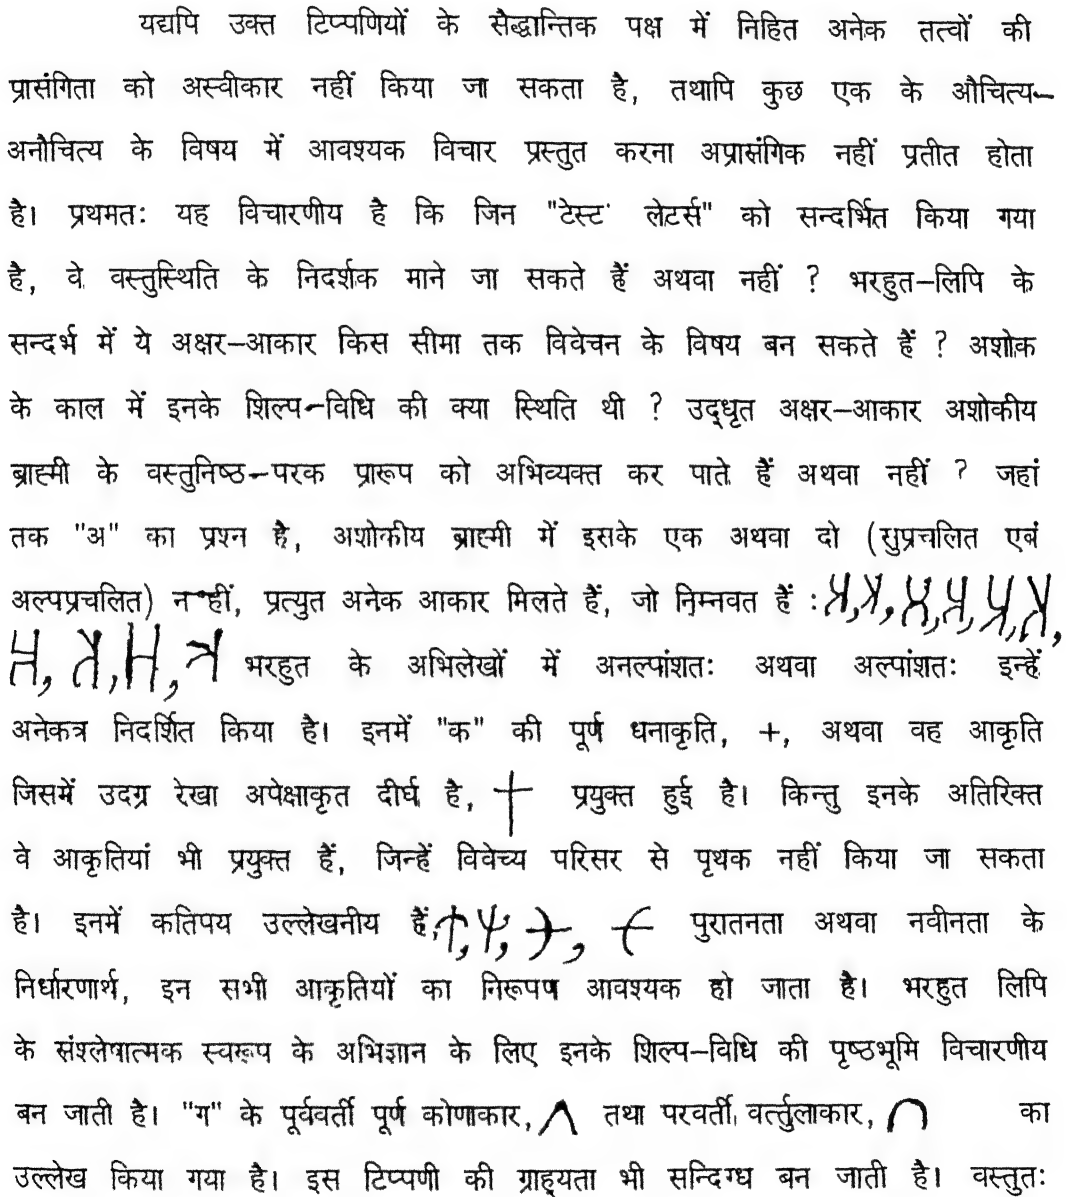 यद्यपि उक्त टिप्पणियों के सैद्धान्तिक पक्ष में निहित अनेक तत्वों की
प्रासंगिता को अस्वीकार नहीं किया जा सकता है, तथापि कुछ एक के औचित्य-
अनौचित्य के विषय में आवश्यक विचार प्रस्तुत करना अप्रासंगिक नहीं प्रतीत होता
है। प्रथमतः यह विचारणीय है कि जिन "टेस्ट लेटर्स" को सन्दर्भित किया गया
है, वे वस्तुस्थिति के निदर्शक माने जा सकते हैं अथवा नहीं ? भरहुत-लिपि के
सन्दर्भ में ये अक्षर-आकार किस सीमा तक विवेचन के विषय बन सकते हैं ? अशोक
के काल में इनके शिल्प-विधि की क्या स्थिति थी ? उद्धृत अक्षर-आकार अशोकीय
ब्राह्मी के वस्तुनिष्ठ-परक प्रारूप को अभिव्यक्त कर पाते हैं अथवा नहीं ? जहां
तक "अ" का प्रश्न है, अशोकीय ब्राह्मी में इसके एक अथवा दो (सुप्रचलित एवं
अल्पप्रचलित) नहीं, प्रत्युत अनेक आकार मिलते हैं, जो निम्नवत हैं :
भरहुत के अभिलेखों में अनल्पांशतः अथवा अल्पांशतः इन्हें
अनेकत्र निदर्शित किया है। इनमें "क" की पूर्ण धनाकृति, +, अथवा वह आकृति
जिसमें उदग्र रेखा अपेक्षाकृत दीर्घ है, प्रयुक्त हुई है। किन्तु इनके अतिरिक्त
वे आकृतियां भी प्रयुक्त हैं, जिन्हें विवेच्य परिसर से पृथक नहीं किया जा सकता
है। इनमें कतिपय उल्लेखनीय हैं, पुरातनता अथवा नवीनता के
निर्धारणार्थ, इन सभी आकृतियों का निरूपण आवश्यक हो जाता है। भरहुत लिपि
के संश्लेषात्मक स्वरूप के अभिज्ञान के लिए इनके शिल्प-विधि की पृष्ठभूमि विचारणीय
बन जाती है। "ग" के पूर्ववर्ती पूर्ण कोणाकार, तथा परवर्ती वर्त्तुलाकार, का
उल्लेख किया गया है। इस टिप्पणी की ग्राह्यता भी सन्दिग्ध बन जाती है। वस्तुतः